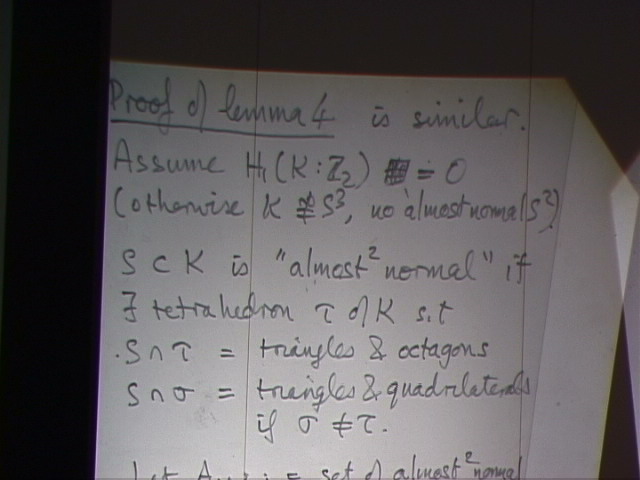 Proof of lemma 4 is similar.
Assume H₁(K:ℤ₂) = 0
(otherwise K ≇ S³, no almost normal S²)
S ⊂ K is "almost² normal" if
∃ tetrahedron τ of K s.t
S∩τ = triangles & octagons
S∩σ = triangles & quadrilaterals
if σ ≠ τ.
Let = set of almost² normal